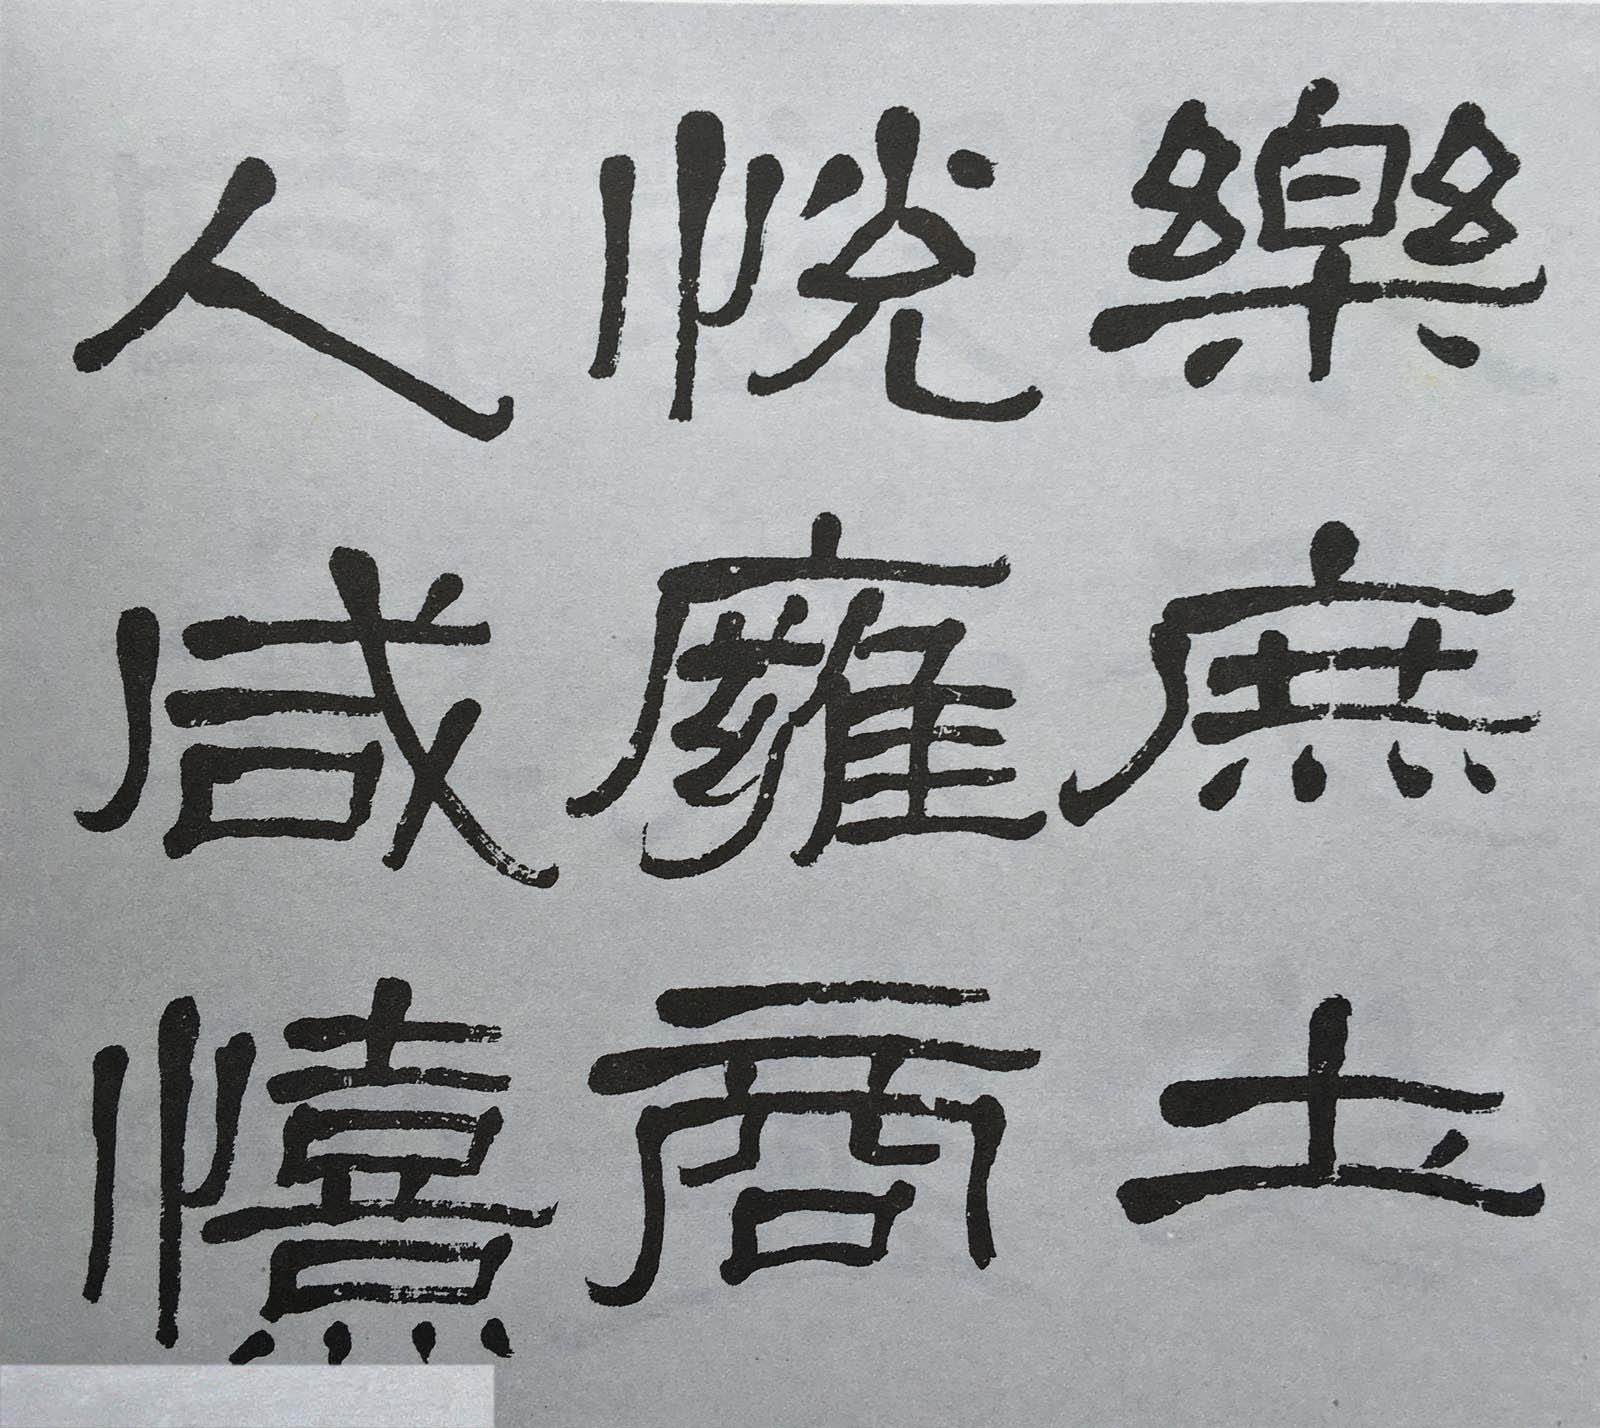 樂庶士
悅廱商
人咸憘